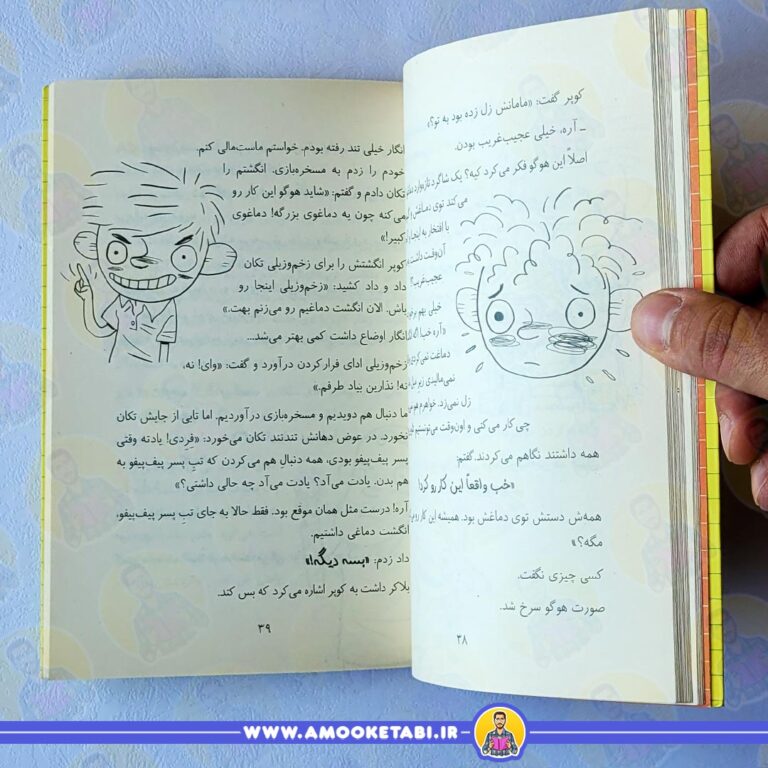 کوپر گفت: «مامانش زل زده بود به تو؟»
ـ آره، خیلی عجیب‌غریب بودن.
اصلاً این هوگو فکر می‌کرد کیه؟ یک شاگرد تازه‌وارد
می‌کند توی دماغش
با افتخار به اینجا
آن‌وقت داشت
عجیب‌غریب؟
خیلی بهم
«آره خب! اگه
دماغت نمی‌کردی
نمی‌مالیدی زیر میز
زل نمی‌زد. خواهرم هم
چی کار می‌کنی و اون‌وقت می‌تونستیم
همه داشتند نگاهم می‌کردند. گفتم:
«خب واقعاً این کار رو کرد!
همه‌ش دستش توی دماغش بود. همیشه این کار رو
مگه؟»
کسی چیزی نگفت.
صورت هوگو سرخ شد.
۳۸
انگار خیلی تند رفته بودم. خواستم ماست‌مالی کنم.
خودم را زدم به مسخره‌بازی. انگشتم را
تکان دادم و گفتم: «شاید هوگو این کار رو
می‌کنه چون یه دماغوی بزرگه! دماغوی
کبیر!»
کوپر انگشتش را برای زخم‌وزیلی تکان
داد و داد کشید: «زخم‌وزیلی اینجا رو
باش. الان انگشت دماغیم رو می‌زنم بهت.»
انگار اوضاع داشت کمی بهتر می‌شد...
زخم‌وزیلی ادای فرار کردن درآورد و گفت: «وای! نه،
نه! نذارین بیاد طرفم.»
ما دنبال هم دویدیم و مسخره‌بازی درآوردیم. اما تایی از جایش تکان
نخورد. در عوض دهانش تندتند تکان می‌خورد: «فِرِدی! یادته وقتی
پسر پیف‌پیفو بودی، همه دنبالِ هم می‌کردن که تبِ پسر پیف‌پیفو به
هم بدن. یادت می‌آد؟ یادت می‌آد چه حالی داشتی؟»
آره! درست مثل همان موقع بود. فقط حالا به جای تبِ پسر پیف‌پیفو،
انگشت دماغی داشتیم.
داد زدم: «بسه دیگه!»
بلاکر داشت به کوپر اشاره می‌کرد که بس کند.
۳۹
WWW.AMOOKETABI.IR